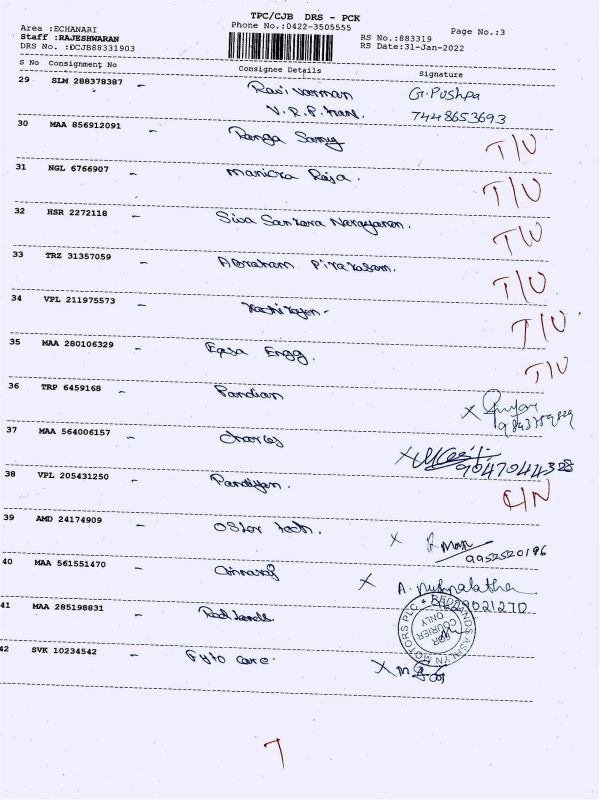 TPC/CJB DRS - PCK
Area :ECHANARI Phone No.:0422-3505555 Page No.:3
Staff :RAJESHWARAN RS No.:883319
DRS No. :DCJB88331903 RS Date:31-Jan-2022
S No Consignment No Consignee Details Signature
29 SLM 288378387 - Ravi varman G.Pushpa
V.R.P. 7448653693
30 MAA 856912091 - Ranga Samy T/U
31 NGL 6766907 - Manicka Raja. T/U
32 HSR 2272118 - Siva Sankara Narayanan. T/U
33 TRZ 31357059 - Abraham T/U
34 VPL 211975573 - T/U
35 MAA 280106329 - Engg. T/U
36 TRP 6459168 - Pandian X
37 MAA 564006157 - Charles X 9047044328
38 VPL 205431250 - Pandiyan. C/N
39 AMD 24174909 - tech. X
9952520196
40 MAA 561551470 - Chinnaraj X A. Pushpalatha
9021270
41 MAA 285198831 - Redlands
REDLANDS ASHLYN MOTORS PLC
COURIER
ONLY
42 SVK 10234542 - care. X
7